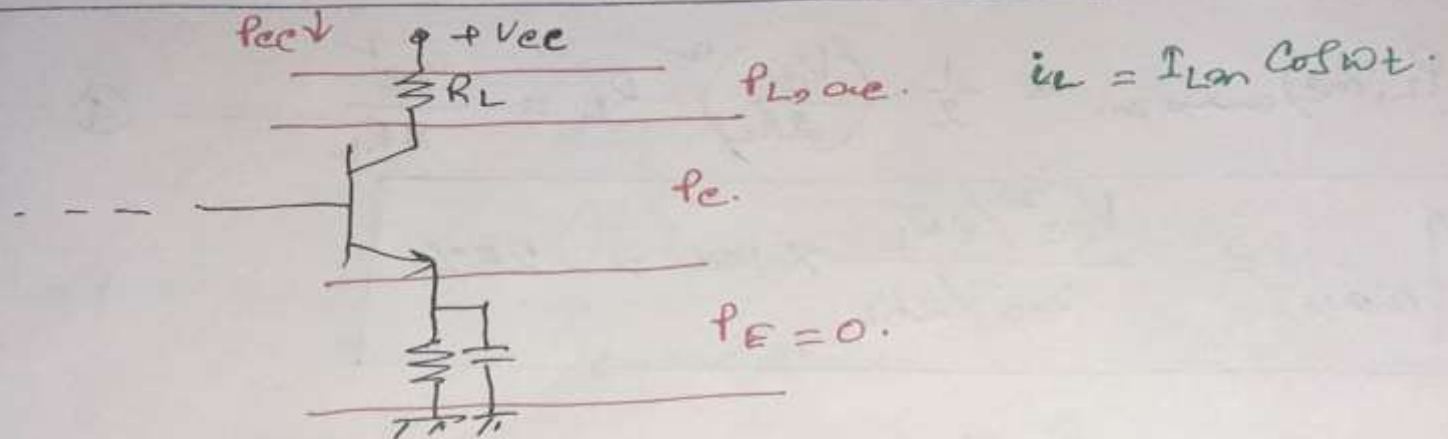 Pcc↓
+ Vcc
RL
PL, ac.
iL = ILm Cosωt.
Pc.
PE = 0.